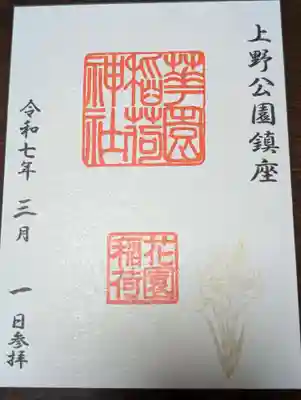 上野公園鎮座
華園稲荷神社
花園稲荷
令和七年 三月 一日参拝